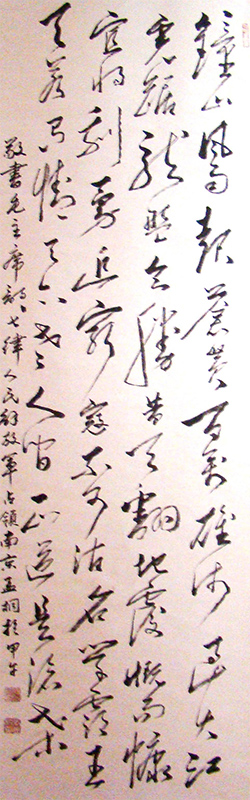 鐘山風雨起蒼黃百萬雄師過大江
虎踞龍盤今勝昔天翻地覆慨而慷
宜將剩勇追窮寇不可沽名學霸王
天若有情天亦老人間正道是滄桑
敬書毛主席詩七律人民解放軍占領南京孟桐於甲午